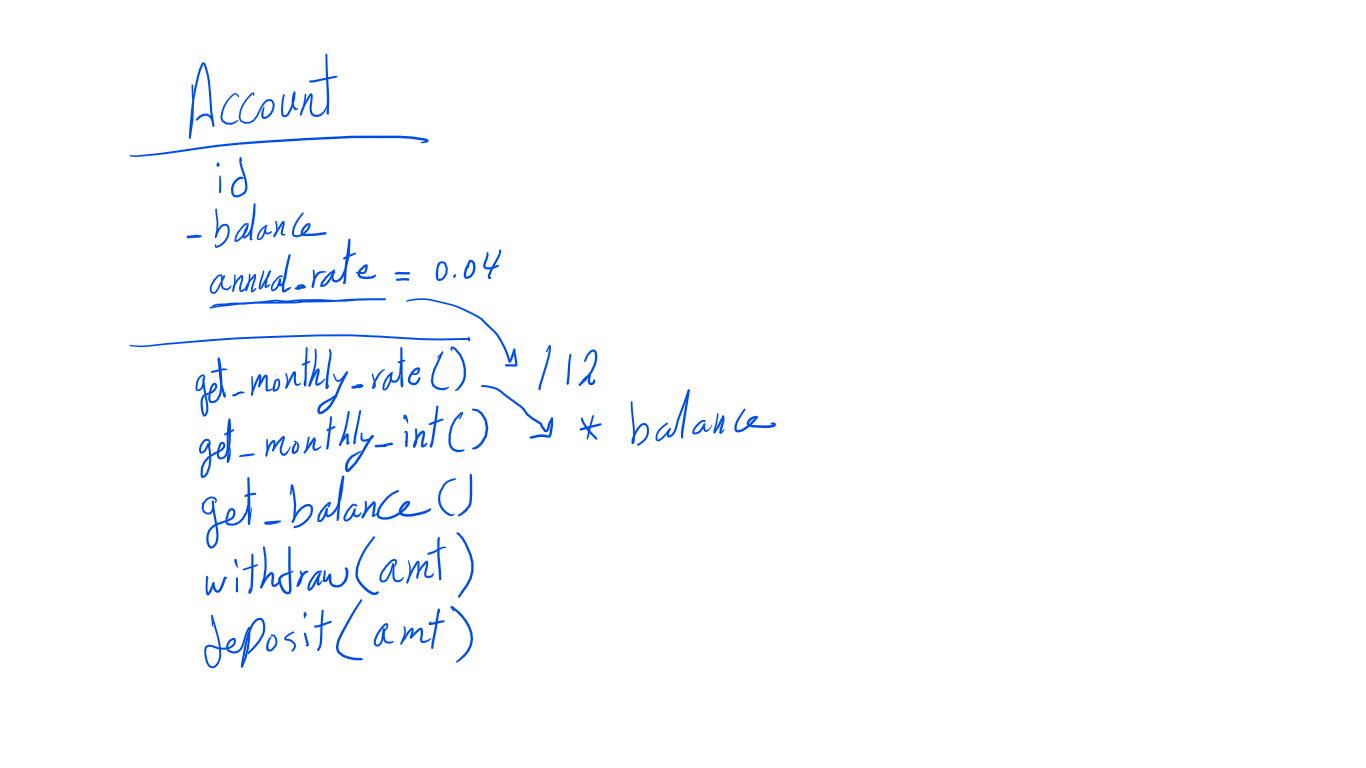 Account
id
- balance
annual_rate = 0.04
get_monthly_rate() /12
get_monthly_int() * balance
get_balance()
withdraw(amt)
deposit(amt)